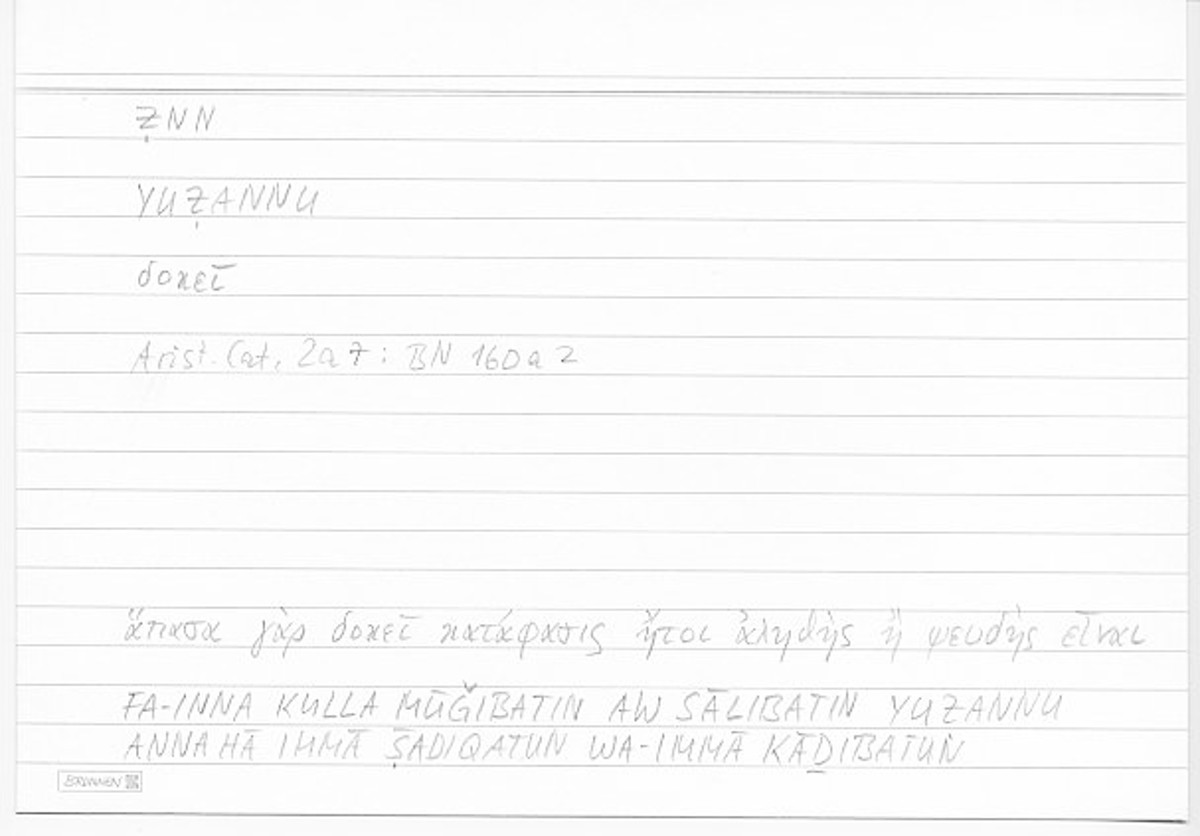 ẒNN
YUẒANNU
δοκεῖ
Arist. Cat. 2a7: BN 160a2
ἅπασα γὰρ δοκεῖ κατάφασις ἤτοι ἀληθὴς ἢ ψευδὴς εἶναι
FA-INNA KULLA MŪǦIBATIN AW SĀLIBATIN YUZANNU
ANNAHĀ IMMĀ ṢADIQATUN WA-IMMĀ KĀḎIBATUN
BRUNNEN